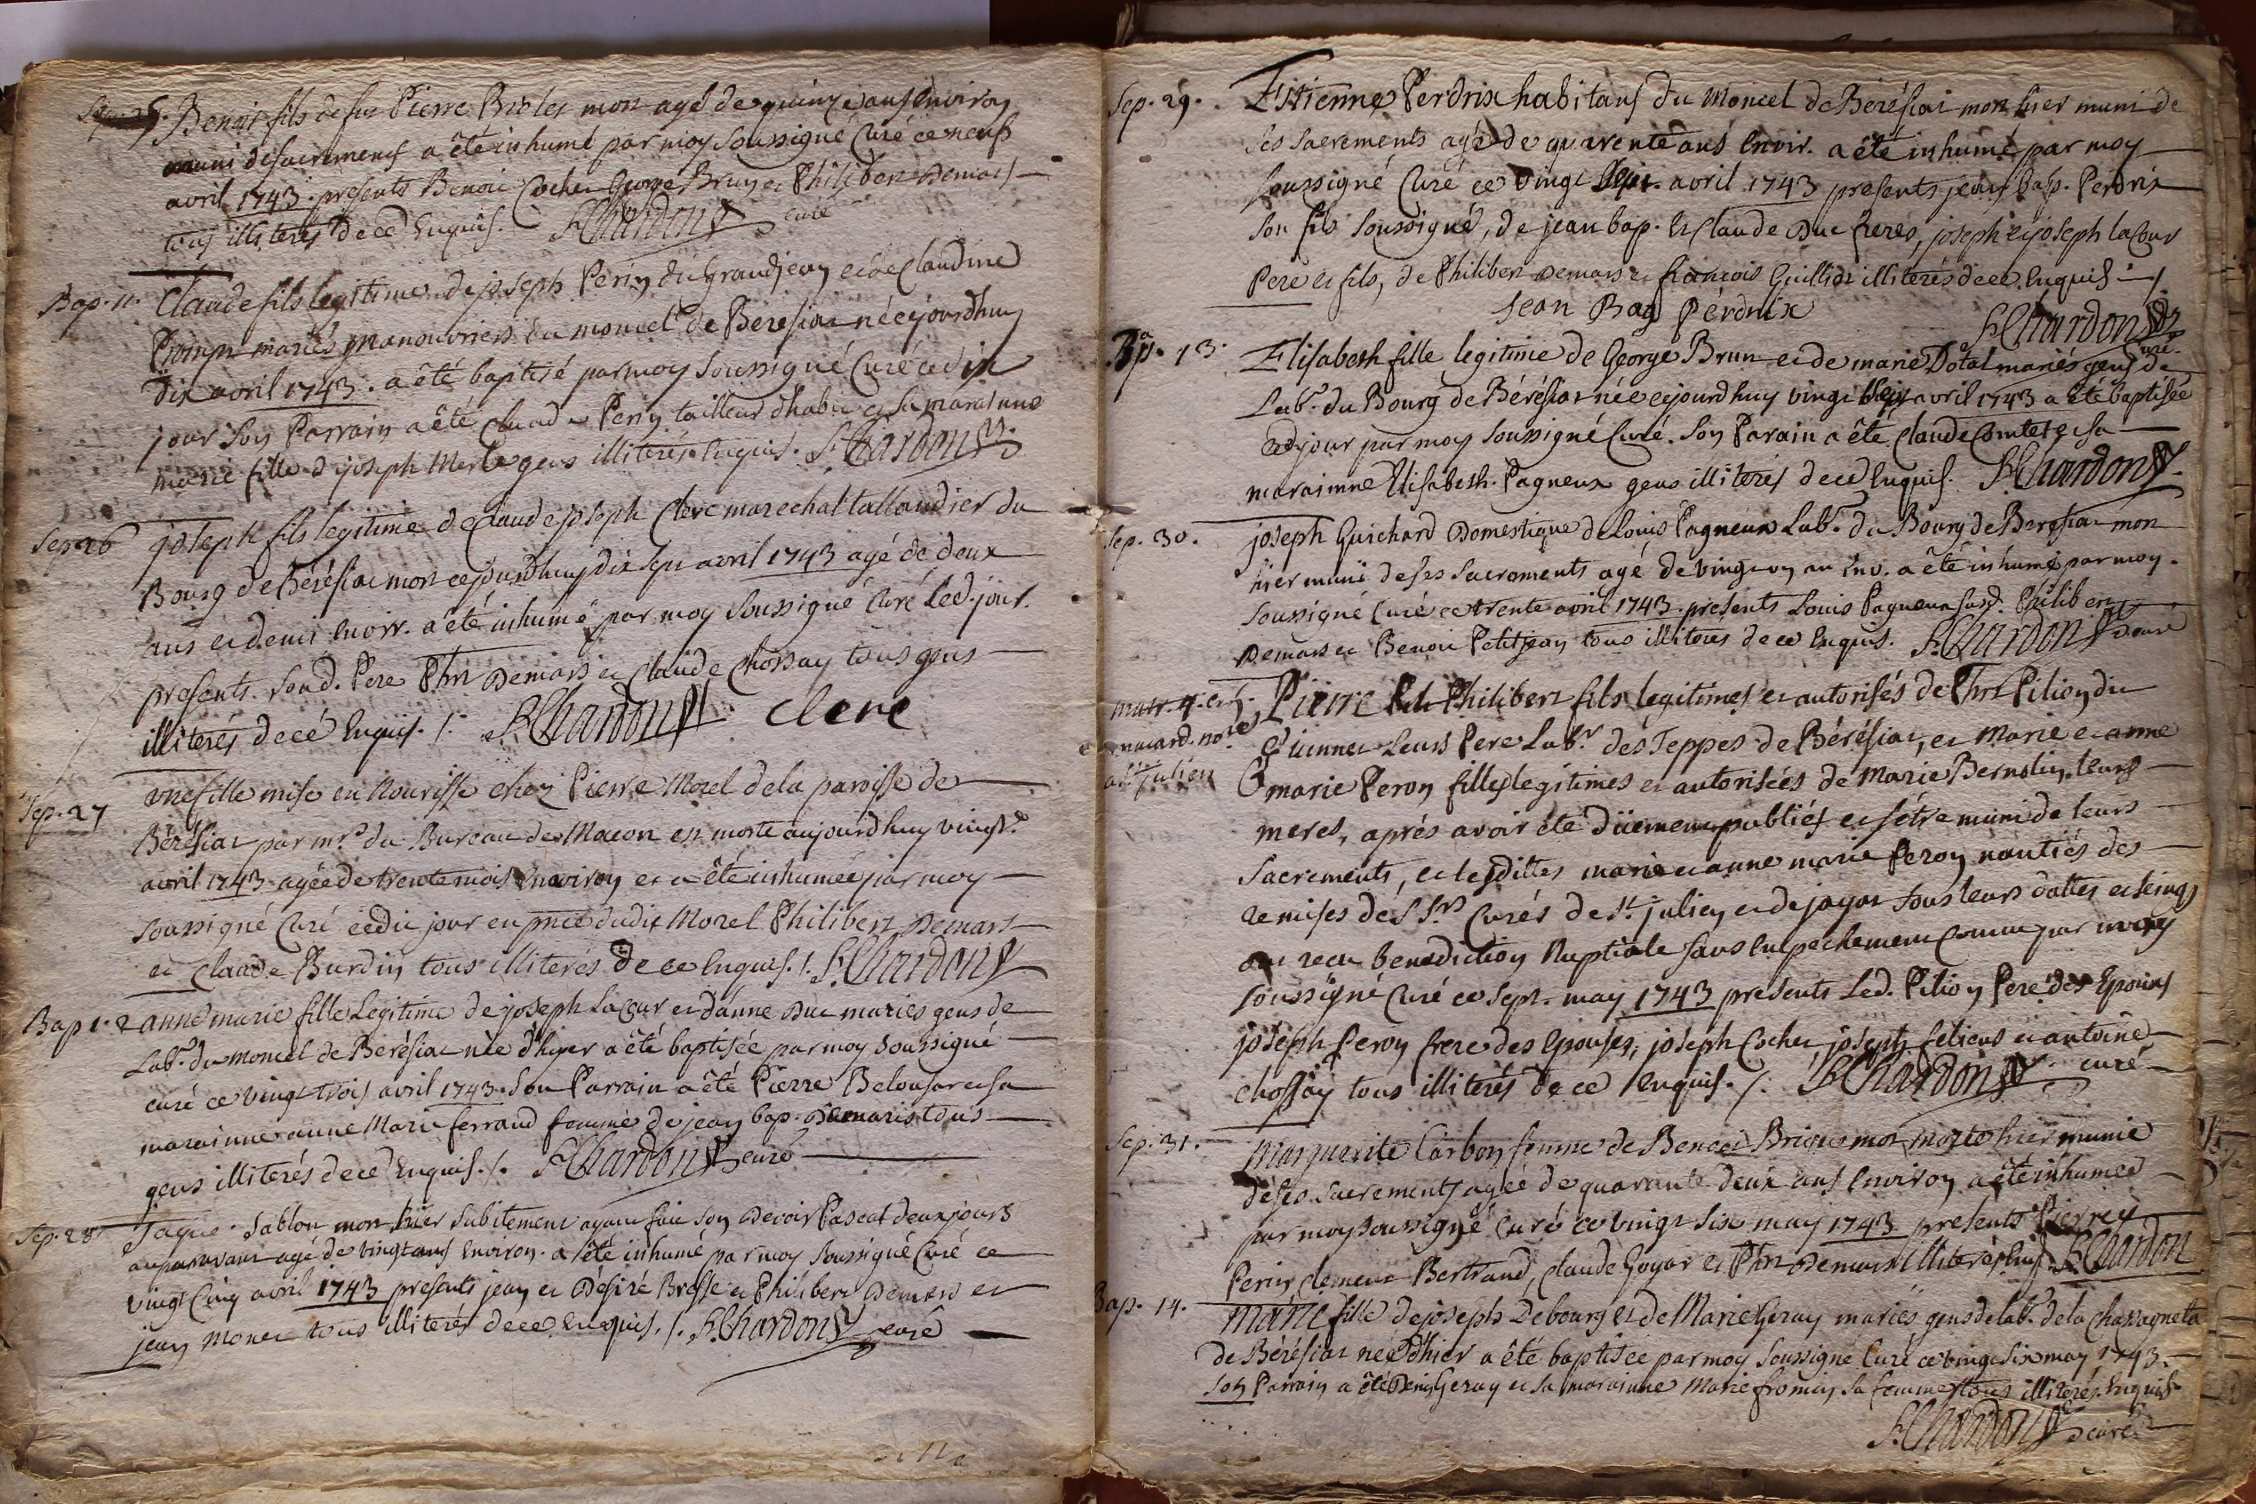 Sep. 25. Benoit fils de feu Pierre Broles mort agé de quinze ans environ
muni de sacrements a été inhumé par moy soussigné Curé ce neuf
avril 1743. presents Benoit Cochet George Brun et Philibert Demars
tous illiterés de ce Enquis. F. Chardon curé
Bap. 11. Claude fils legitime de joseph Perin du Grandjean et de Claudine
mariés manouvriers du moncel de Beresiat né cejourdhuy
dix avril 1743. a été baptisé par moy soussigné Curé ced.
jour son Parrain a été Claude Perin tailleur dhabit et sa maraine
marie fille d joseph Merle gens illiterés Enquis. F. Chardon
Sep. 26 joseph fils legitime de Claude joseph Clerc marechal tallandier du
Bourg de Bérésiat mort cejourdhuy dix sept avril 1743 agé de deux
ans et demi envir. a été inhumé par moy soussigné Curé led. jour.
presents. sond. Pere Phri Demars et Claude Chossay tous gens
illiterés de ce Enquis. /. F. Chardon Clerc
Sep. 27 une fille mise en Nourisse chez Pierre Morel de la paroisse de
Bérésiat par mrs du Bureau de Macon est morte aujourdhuy vingt.
avril 1743 agée de trente mois Environ et a été inhumée par moy
soussigné Curé cedit jour en pnce dudit Morel Philibert Demars
et Claude Burdin tous illiterés de ce Enquis. /. F. Chardon
Bap. 12 anne marie fille Legitime de joseph Lacour et danne Duc mariés gens de
Labr du moncel de Berésiat née d'hyer a été baptisée par moy soussigné
curé ce vingt trois avril 1743. Son Parrain a été Pierre Belousar et sa
marainne anne Marie ferrand femme de jean bap. Demaris tous
gens illiterés de ce Enquis. /. F. Chardon curé
Sep. 28 Jaque Sablon mort hier subitement ayant fait son Devoir Pascal deux jours
auparavant agé de vingt ans Environ. a été inhumé par moy soussigné Curé ce
vingt Cinq avril 1743 presents jean et Désiré Bresse et Philibert Demars et
jean Monet tous illiterés de ce Enquis. /. F. Chardon curé
Sep. 29. Estienne Perdrix habitans du Moncel de Berésiat mort hier muni de
ses sacrements agé de quarente ans Envir. a été inhumé par moy
soussigné Curé ce vingt sept. avril 1743 presents jean bap. Perdrix
son fils soussigné, de jean bap. et Claude Duc freres, joseph et joseph laCour
Pere et fils, de Philibert Demars et francois Guillot illiterés de ce Enquis /
Jean Bap Perdrix F. Chardon
curé.
Bap. 13. Elisabeth fille legitime de George Brun et de marie Dotal mariés gens de
Labr. du Bourg de Bérésiat née cejourdhuy vingt sept avril 1743 a été baptisée
ced. jour par moy soussigné Curé. son Parain a été Claude Comtet et sa
marainne Elisabeth Pagneux gens illiterés de ce Enquis. F. Chardon
Sep. 30. joseph Guichard Domestique de Louis Pagneux Labr. du Bourg de Beresiat mort
hier muni de ses sacraments agé de vingt un an Env. a été inhumé par moy.
soussigné Curé ce trente avril 1743. presents Louis Pagneux susd. Philibert
Demars et Benoit Petitjean tous illiteres de ce Enquis. F. Chardon curé
Mar. 4. et 5. Pierre et Philibert fils legitimes et autorisés de Phri Pilion du
no.re Etienne Leurs Pere Labr. des Teppes de Bérésiat, et Marie et anne
a st julien marie Peron filles legitimes et autorisées de Marie Bernolin leurs
meres, aprés avoir été düement publiés et sétre muni de leurs
Sacrements, et lesdittes marie et anne marie Peron nanties des
remises des Srs Curés de st. julien et de jayat sous leurs dattes et seings
ont recu benediction Nuptiale sans Enpechement connu par moy
soussigné Curé ce sept. may 1743 presents Led. Pilion Pere des Epoux
joseph Peron frere des Epouses, joseph Cochet joseph feliens et antoine
chossay tous illiterés de ce Enquis. /. F. Chardon curé
Sep. 31. Marguerite Carbon femme de Benoit Brigue morte hier munie
de ses sacrements agée de quarante deux ans Environ a été inhumée
par moy soussigné Curé ce vingt six may 1743 presents Pierre
Perin, Clement Bertrand, Claude Goyar et Phri Demars illiterés Enq. F. Chardon
Bap. 14. Marie fille de joseph Debourg et de Marie Geray mariés gens de labr. de la Chassagneta
de Bérésiat née d'hier a été baptisée par moy soussigné Curé ce vingt six may 1743.
son Parrain a été Denis Geray et sa marainne Marie fromin sa femme tous illiterés Enquis
F. Chardon curé